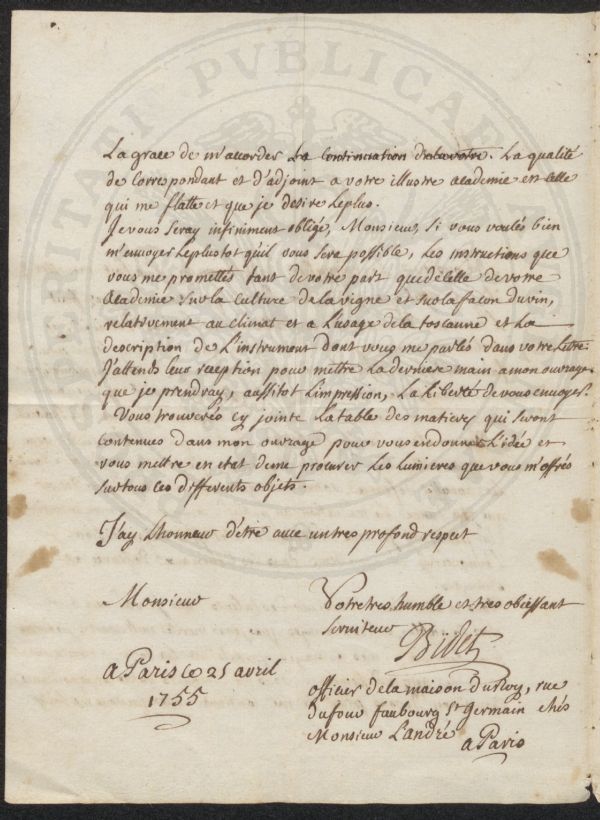 La grace de m'accorder La Continuation de la votre. La qualité
de Correspondant et d'adjoint a votre illustre academie est celle
qui me flatte et que je desire Leplus.
Je vous Seray infiniment obligé, Monsieur, Si vous voulés bien
m'envoyer Leplustot qu'il vous Sera possible, Les instructions que
vous me promettés tant de votre part que de celle de votre
Academie Sur la Culture de la vigne et Sur la façon du vin,
relativement au Climat et a L'usage de la toscanne et La
description de L'instrument dont vous me parlés dans votre Lettre.
J'attends Leur reception pour mettre La derniere main a mon ouvrage
que je prendray, aussitot L'impression, La Liberté de vous envoyer.
Vous trouverés Cy jointe La table des matieres qui Seront
contenues dans mon ouvrage pour vous en donner L'idée et
vous mettre en etat de me procurer Les Lumieres que vous m'offrés
Sur tous Ces differents objets.
J'ay L'honneur d'être avec un tres profond respect
Monsieur
Votre tres humble et tres obeissant
Serviteur
Bidet
a Paris ce 25 avril
1755
officier de la maison du Roy, rue
du four faubourg St Germain chés
Monsieur Landré
a Paris
PVBLICAE